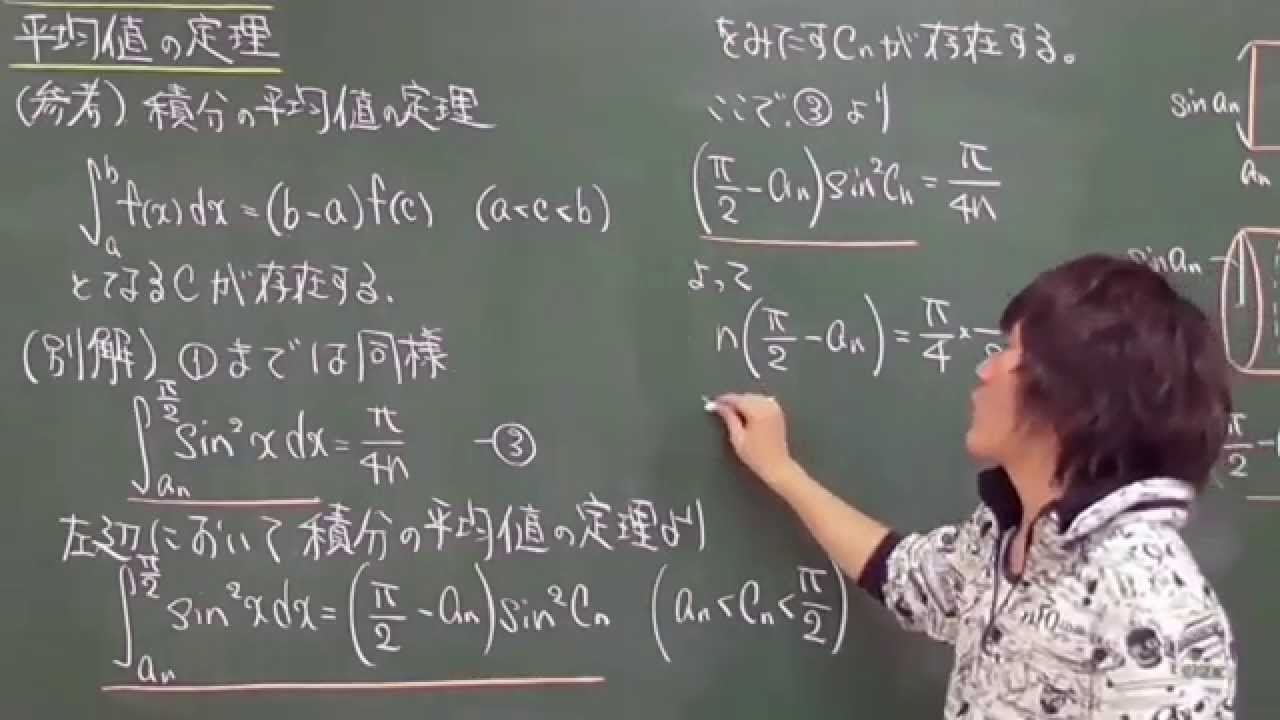 平均値の定理
(参考) 積分の平均値の定理
∫_a^b f(x)dx=(b-a)f(c) (a<c<b)
となるCが存在する.
(別解) ①までは同様
∫_{a_n}^{π/2} sin²x dx=π/4n -③
左辺において積分の平均値の定理より
∫_{a_n}^{π/2} sin²x dx=(π/2-a_n)sin²C_n (a_n<C_n<π/2)
をみたすC_nが存在する。
ここで、③より
(π/2-a_n)sin²C_n=π/4n
よって
n(π/2-a_n)=π/4×
sin a_n
a_n
sin a_n
π/2-